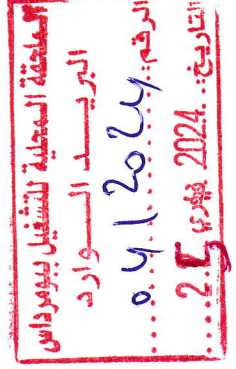 الملحقة المحلية للتشغيل ببومرداس
البريد الوارد
الرقم: 04/2024
التاريخ: 25 فيفري 2024